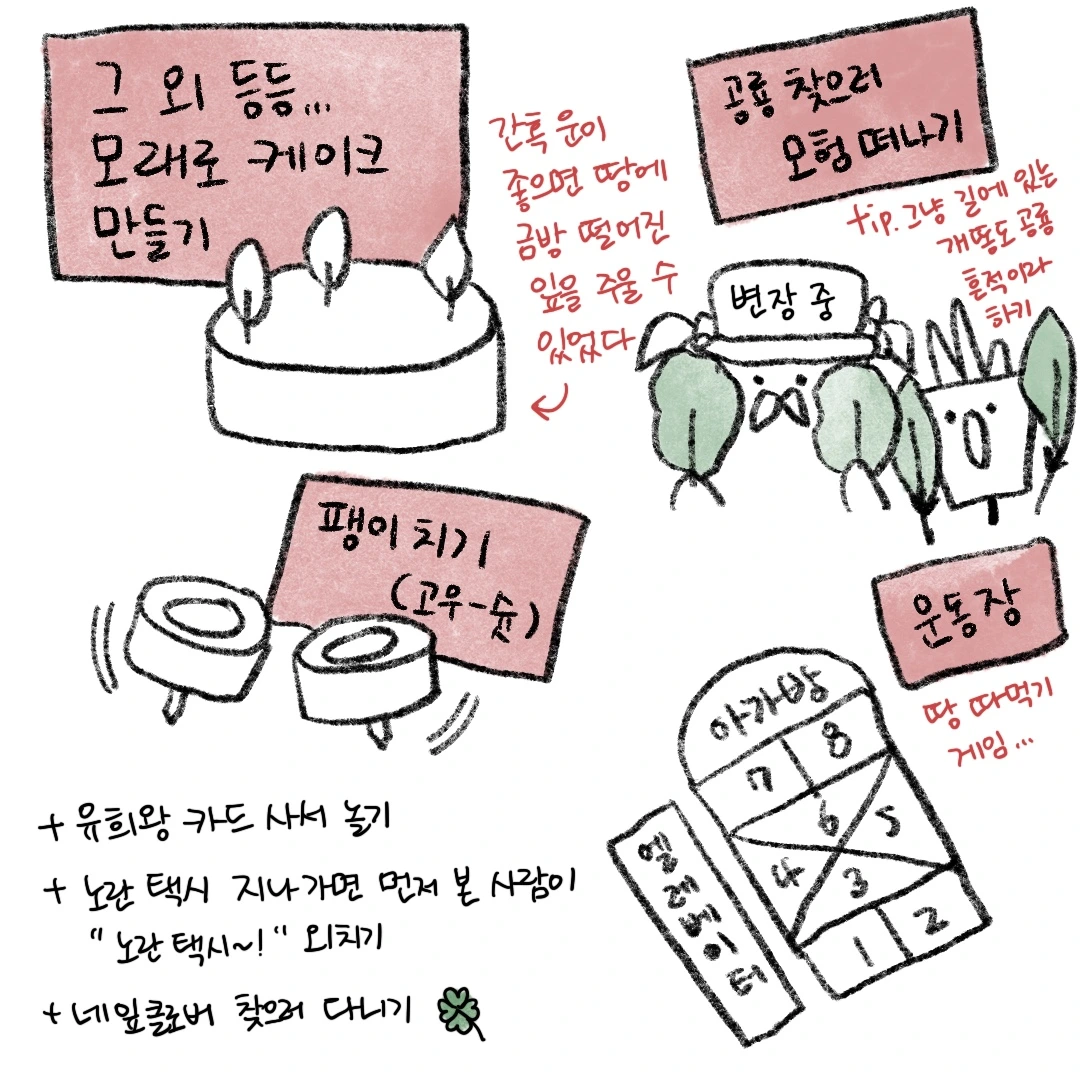 그 외 등등...
모래로 케이크
만들기
간혹 운이
좋으면 땅에
금방 떨어진
잎을 주울 수
있었다
공룡 찾으러
모험 떠나기
tip. 그냥 길에 있는
개똥도 공룡
흔적이라
하기
변장 중
팽이 치기
(고우-슛)
운동장
땅 따먹기
게임...
아가방
7 8
6 5
4 3
1 2
엘레베이터
+ 유희왕 카드 사서 놀기
+ 노란 택시 지나가면 먼저 본 사람이
"노란 택시~!" 외치기
+ 네잎클로버 찾으러 다니기